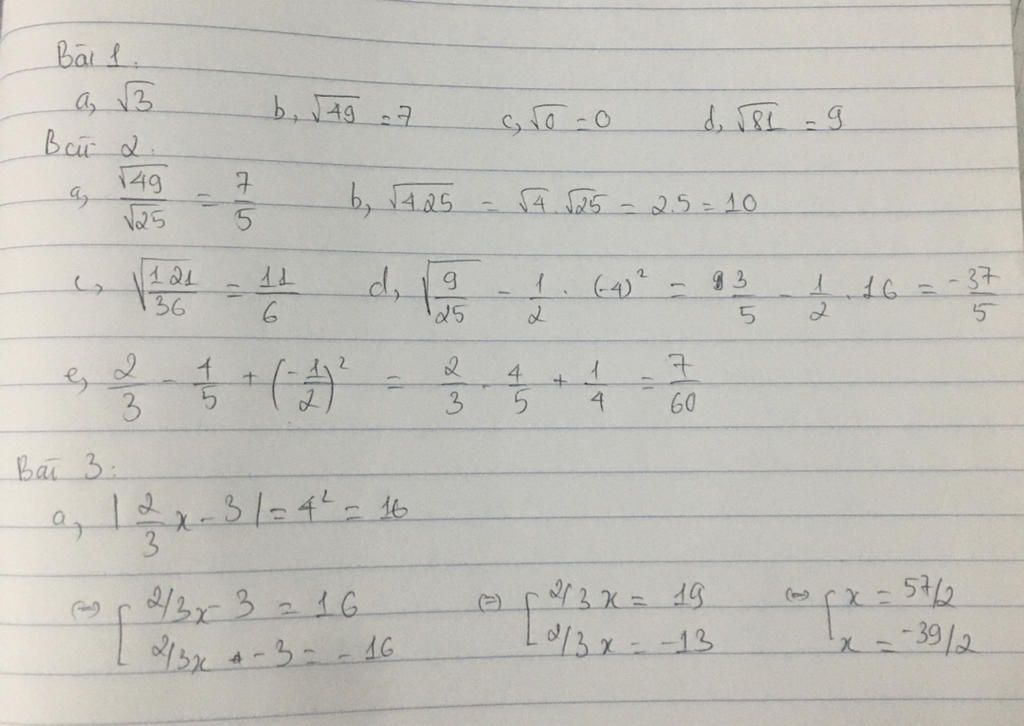 Bài 1.
a, √3 b, √49 = 7 c, √0 = 0 d, √81 = 9
Bài 2.
a, √49/√25 = 7/5 b, √4.25 = √4.√25 = 2.5 = 10
c, √(121/36) = 11/6 d, √(9/25) - 1/2 . (-4)² = 3/5 - 1/2 . 16 = -37/5
e, 2/3 - 4/5 + (-1/2)² = 2/3 - 4/5 + 1/4 = 7/60
Bài 3:
a, |2/3 x - 3| = 4² = 16
⇔ [ 2/3x - 3 = 16 ⇔ [ 2/3 x = 19 ⇔ [ x = 57/2
2/3x - 3 = -16 2/3 x = -13 x = -39/2